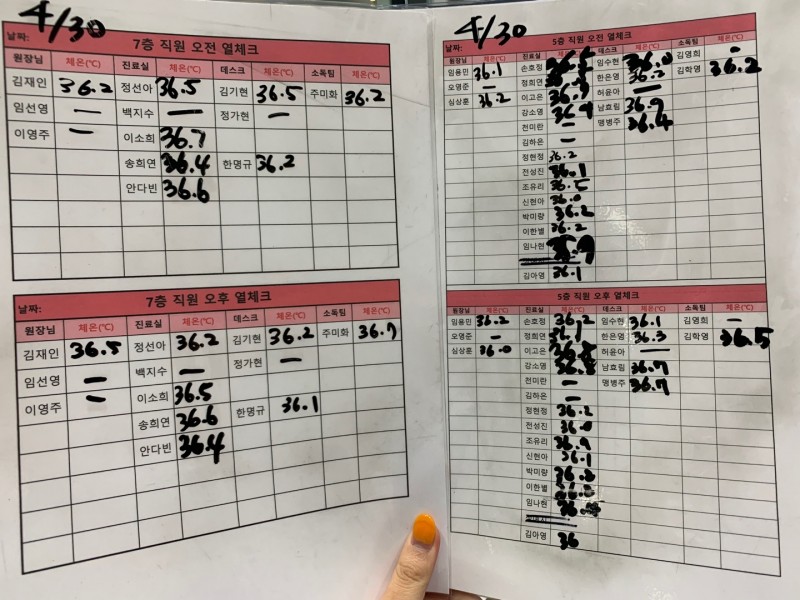 4/30
날짜: 7층 직원 오전 열체크
원장님 체온(℃) 진료실 체온(℃) 데스크 체온(℃) 소독팀 체온(℃)
김재인 36.2 정선아 36.5 김기현 36.5 주미화 36.2
임선영 — 백지수 — 정가현 —
이영주 — 이소희 36.7
송희연 36.4 한명규 36.2
안다빈 36.6
날짜: 7층 직원 오후 열체크
원장님 체온(℃) 진료실 체온(℃) 데스크 체온(℃) 소독팀 체온(℃)
김재인 36.5 정선아 36.2 김기현 36.2 주미화 36.7
임선영 — 백지수 — 정가현 —
이영주 — 이소희 36.5
송희연 36.6 한명규 36.1
안다빈 36.4
4/30
날짜: 5층 직원 오전 열체크
원장님 체온(℃) 진료실 체온(℃) 데스크 체온(℃) 소독팀 체온(℃)
임용민 36.1 손호정 임수현 36.0 김영희 —
오영준 — 정희연 한은영 36.2 김학영 36.2
심상훈 36.2 이고은 허윤아 —
강소영 남효림 36.9
전미란 — 맹병주 36.4
김하은 —
정현정 36.2
전성진 36.1
조유리 36.5
신현아 36.0
박미량 36.2
이한별 36.2
임나현
김아영 36.1
5층 직원 오후 열체크
원장님 체온(℃) 진료실 체온(℃) 데스크 체온(℃) 소독팀 체온(℃)
임용민 36.2 손호정 36.2 임수현 36.1 김영희 —
오영준 — 정희연 한은영 36.3 김학영 36.5
심상훈 36.0 이고은 허윤아 —
강소영 남효림 36.7
전미란 — 맹병주 36.7
김하은 —
정현정 36.2
전성진 36.0
조유리 36.9
신현아 36.1
박미량
이한별
임나현
김아영 36